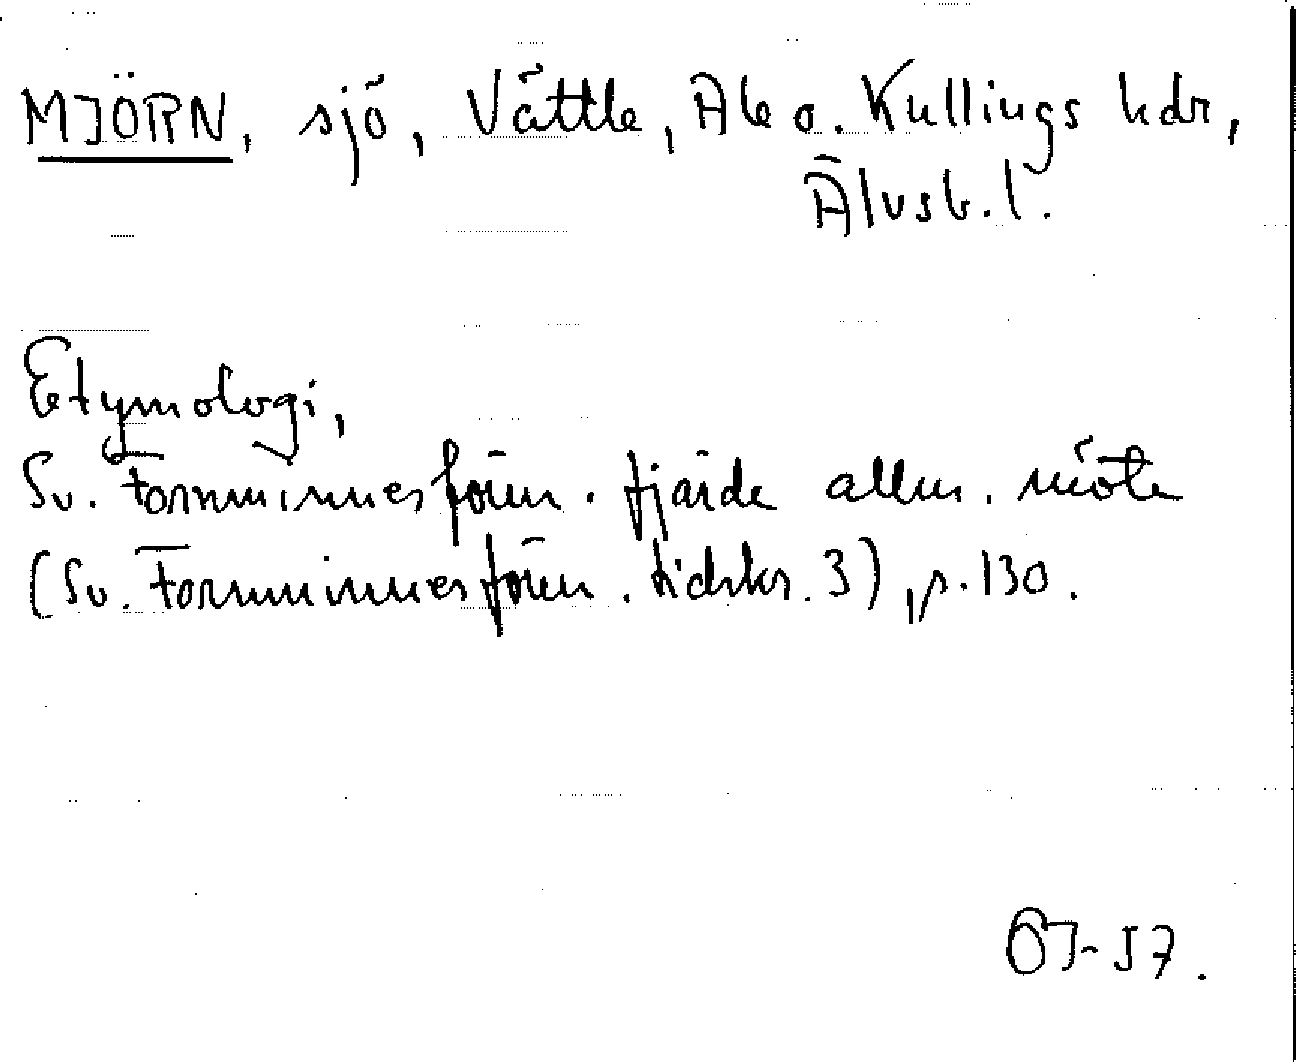 MJÖRN, sjö, Vättle, Ale o. Kullings hdr,
Älvsb. l.
Etymologi,
Sv. Fornminnesfören. fjärde allm. möte
(Sv. Fornminnesfören. tidskr. 3), p. 130.
ÖJ-57.